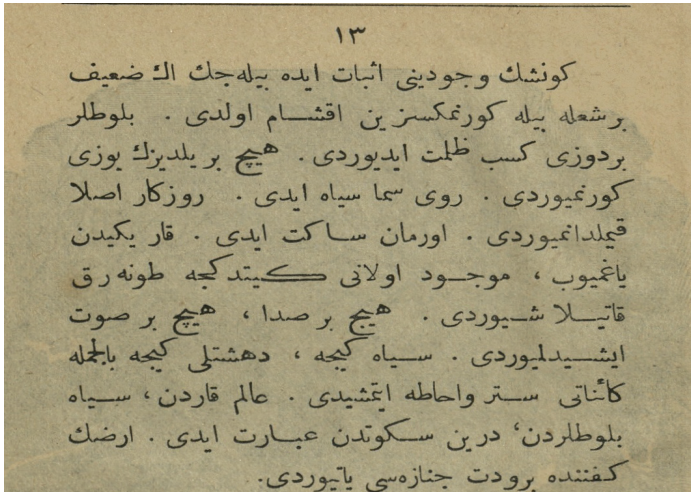 ١٣
كونشك وجودینی اثبات ایده بیله‌جك اك ضعیف
بر شعله بیله كورنمكسزین اقشام اولدی . بلوطلر
بردوزی كسب ظلمت ایدیوردی . هیچ بر یلدیزك یوزی
كورنمیوردی . روی سما سیاه ایدی . روزكار اصلا
قیملدانمیوردی . اورمان ساكت ایدی . قار یكیدن
یاغمیوب ، موجود اولانی كیتدكجه طونه‌رق
قاتیلاشیوردی . هیچ بر صدا ، هیچ بر صوت
ایشیدلمیوردی . سیاه كیجه ، دهشتلی كیجه بالجمله
كائناتی ستر واحاطه ایتمشیدی . عالم قاردن ، سیاه
بلوطلردن ، درین سكوتدن عبارت ایدی . ارضك
كفننده برودت جنازه‌سی یاتیوردی .